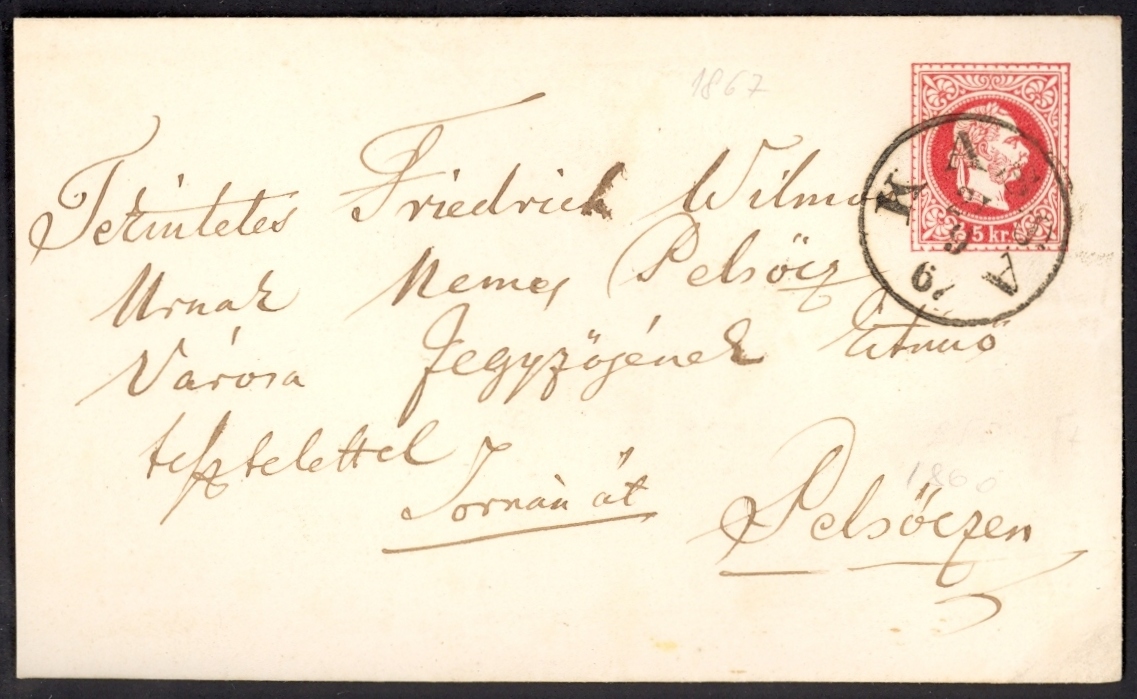 1867
5 kr.
KASSA
Tekintetes Friedrich Wilmo
Urnak Nemes Pelsőcz
Városa Jegyzőjének
tisztelettel
Tornán át
1860
Pelsőczen